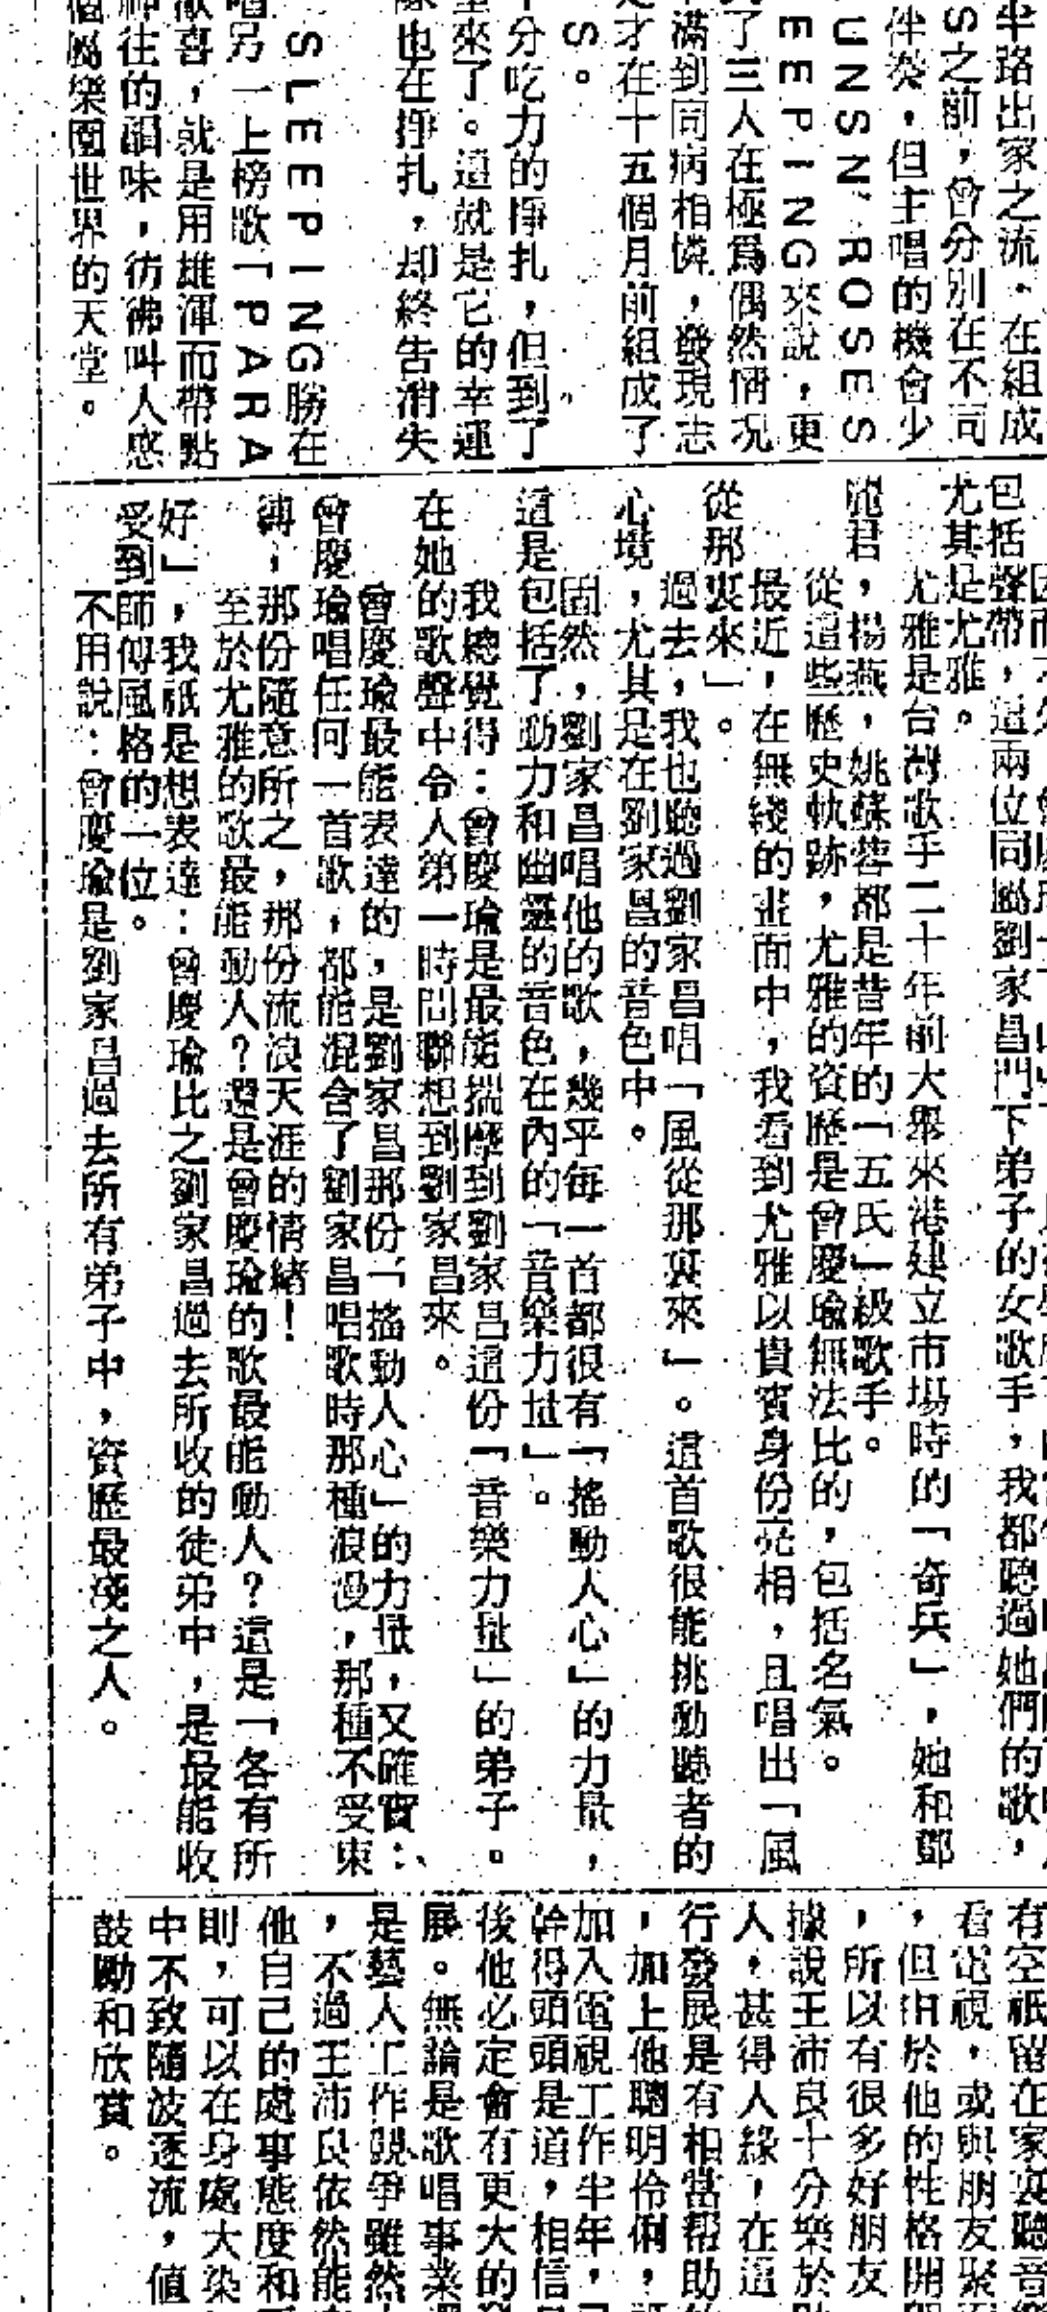 半路出家之流。在組成
S之前，會分別在不同
伴奏。但主唱的機會少
UNSN'ROSES
EEPING來說，更
了三人在極為偶然情況
滿到同病相憐，發現志
才在十五個月前組成了
S。
分吃力的掙扎，但到了
來了。這就是它的幸運
也在掙扎，却終告消失
SLEEPING勝在
唱另一上榜歌「PARA
歡喜，就是用雄渾而帶點
神往的韻味，彷彿叫人感
個屬樂園世界的天堂。
包括聲帶，這兩位同屬劉家昌門下弟子的女歌手，我都聽過她們的歌，
尤其是尤雅。
尤雅是台灣歌手二十年前大舉來港建立市場時的「奇兵」，她和鄧
麗君，楊燕，姚蘇蓉都是昔年的「五氏」級歌手。
從這些歷史軌跡，尤雅的資歷是曾慶瑜無法比的，包括名氣。
最近，在無綫的畫面中，我看到尤雅以貴賓身份亮相，且唱出「風
從那裏來」。
過去，我也聽過劉家昌唱「風從那裏來」。這首歌很能挑動聽者的
心境，尤其是在劉家昌的音色中。
固然，劉家昌唱他的歌，幾乎每一首都很有「搖動人心」的力量，
這是包括了動力和幽靈的音色在內的「音樂力量」。
我總覺得：曾慶瑜是最能揣摩到劉家昌這份「音樂力量」的弟子。
在她的歌聲中令人第一時間聯想到劉家昌來。
曾慶瑜最能表達的，是劉家昌那份「搖動人心」的力量，又確實：
曾慶瑜唱任何一首歌，都能混合了劉家昌唱歌時那種浪漫，那種不受束
縛，那份隨意所之，那份流浪天涯的情緒！
至於尤雅的歌最能動人？還是曾慶瑜的歌最能動人？這是「各有所
好」，我祇是想表達：曾慶瑜比之劉家昌過去所收的徒弟中，是最能收
受到師傅風格的一位。
不用說：曾慶瑜是劉家昌過去所有弟子中，資歷最淺之人。
有空祇留在家裏聽音
看電視，或與朋友聚
，但由於他的性格開
，所以有很多好朋友
據說王沛良十分樂於
人，甚得人緣，在這
行發展是有相當幫助
，加上他聰明伶俐，
加入電視工作半年，
幹得頭頭是道，相信
後他必定會有更大的
展。無論是歌唱事業
是藝人工作競爭雖然
，不過王沛良依然能
他自己的處事態度和
則，可以在身處大染
中不致隨波逐流，值
鼓勵和欣賞。